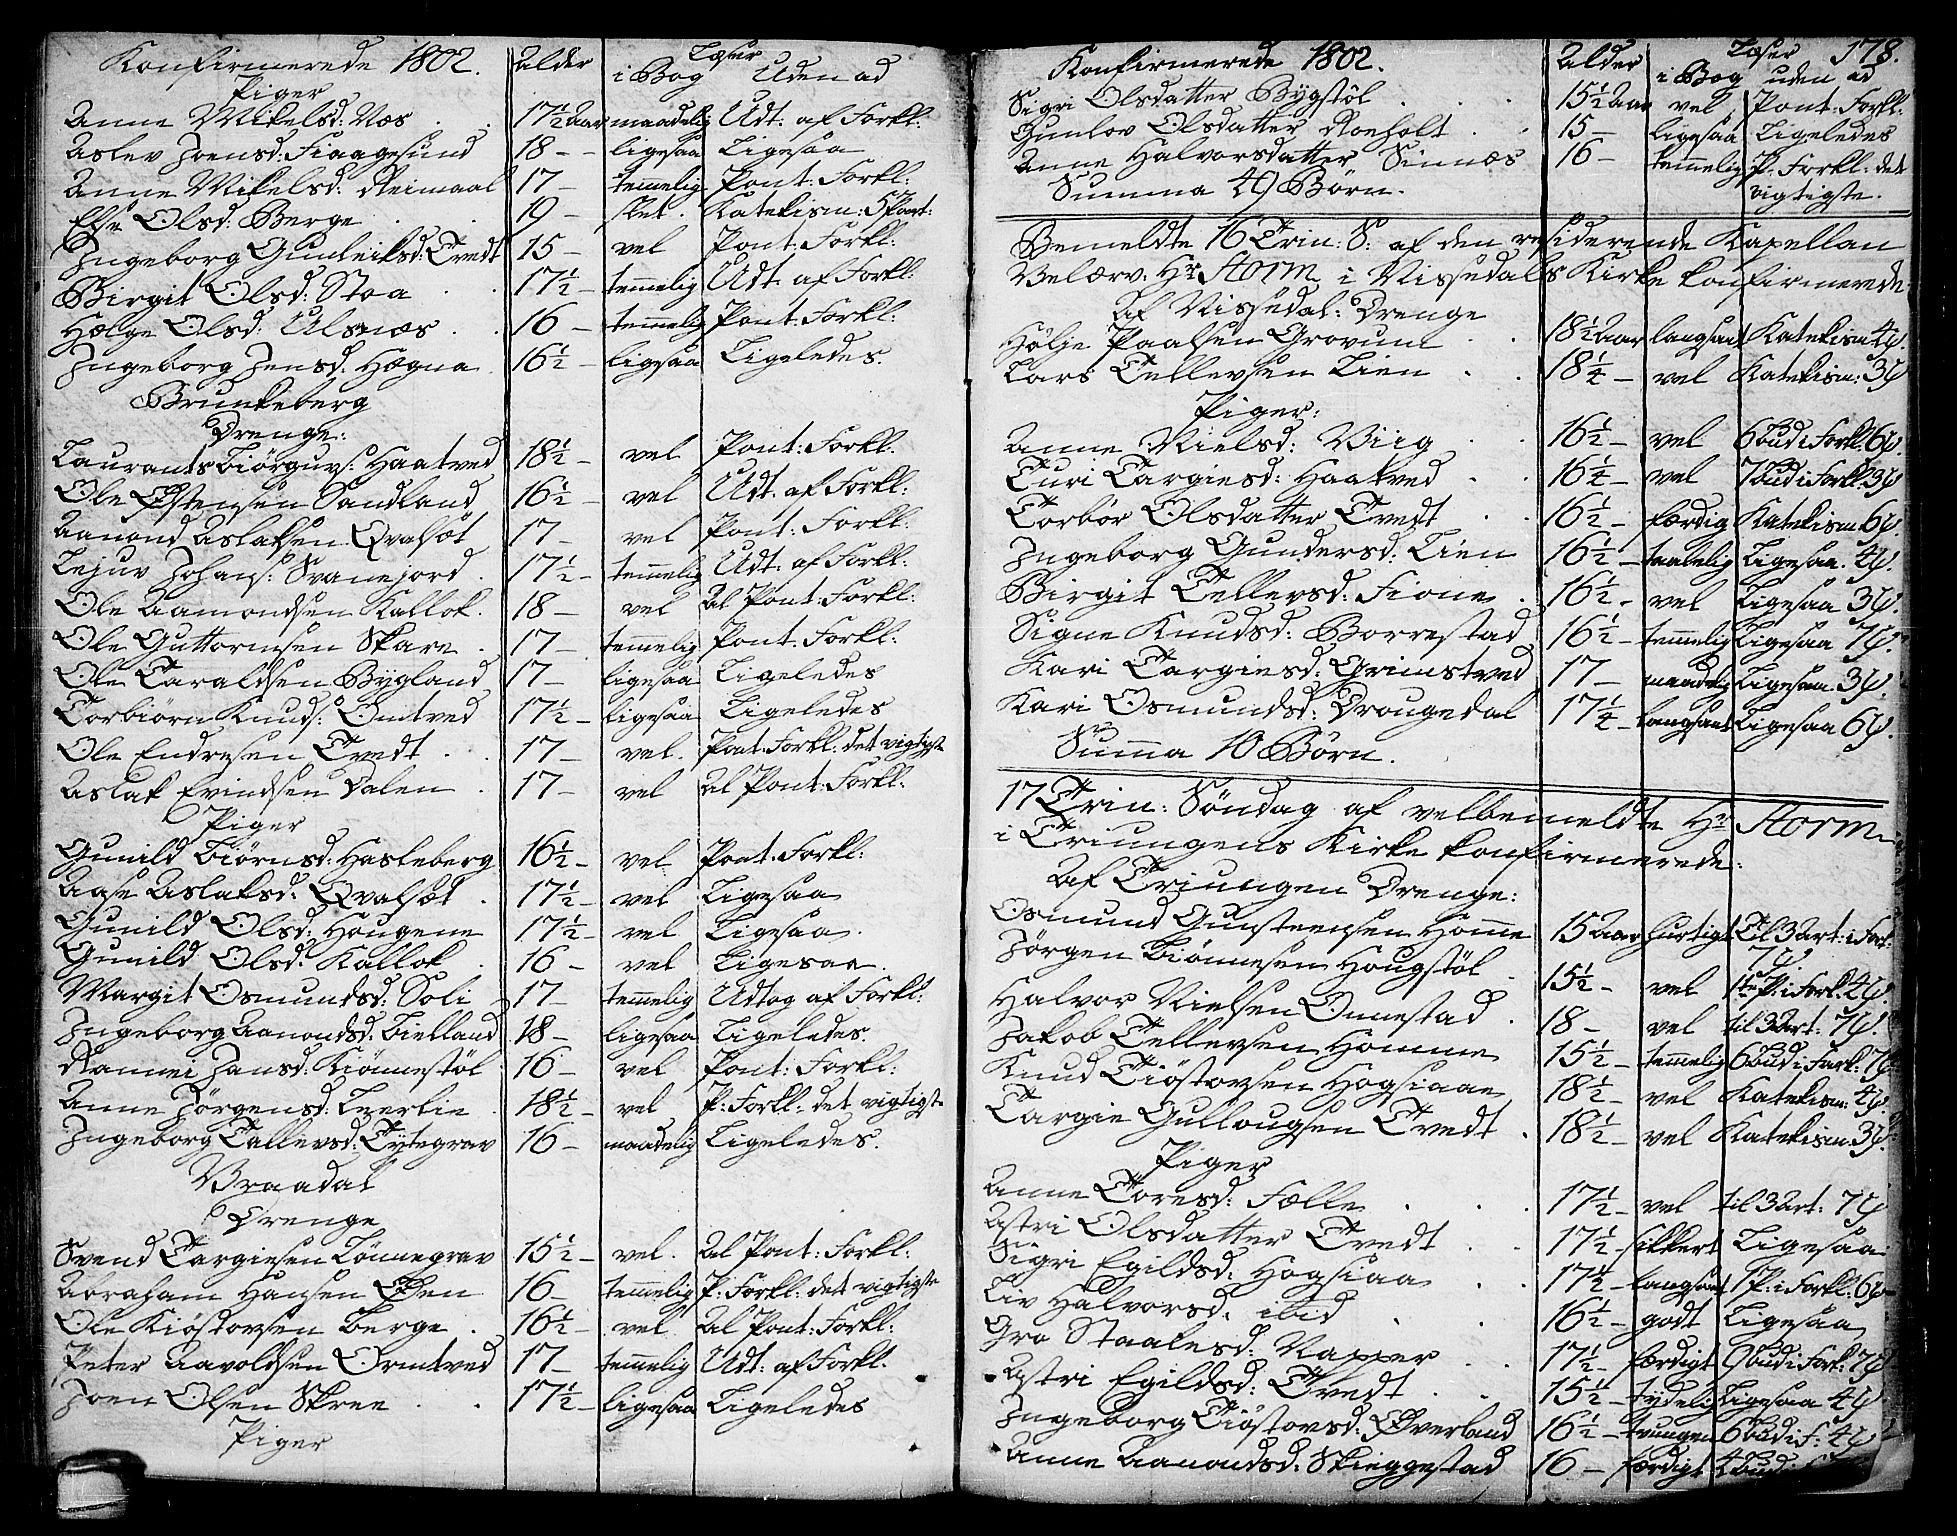 Konfirmerede 1802. Alder Læser
i Bog Uden ad
Piger
Anne Mikelsd: Næs 17½ Aar maadelig Udt: af Forkl:
Aslev Joensd: Fiaagesund 18 – ligesaa Ligesaa
Anne Mikelsd: Reimaal 17 – temmelig Pont: Forkl:
Olsd: Berge 19 – slet. Katekism: 5 Part:
Ingeborg Gunleiksd: Tvedt 15 – vel Pont: Forkl:
Birgit Olsd: Stoa 17½ – temmelig Udt. af Forkl:
Hælge Olsd: Ulsnæs 16 – temmelig Pont: Forkl:
Ingeborg Jensd: Høgna 16½ – ligesaa Ligeledes.
Brunkeberg
Drenge:
Laurants Biörguvs: Haatved 18½ – vel Pont: Forkl:
Ole Østensen Sandland 16½ – vel Udt. af Forkl:
Aanond Aslaksen Qvalsøt 17 – vel Pont: Forkl:
Lejuv Johans: Svanejord 17½ – temmelig Udt: af Forkl:
Ole Aamondsen Kallok. 18 – vel Al Pont: Forkl:
Ole Guttormsen Skare 17 – temmelig Pont: Forkl:
Ole Taraldsen Bygland 17 – ligesaa Ligeledes
Torbiørn Knuds: Omtved 17½ – ligesaa Ligeledes
Ole Endresen Tvedt 17 – vel. Pont: Forkl: det vigtigste
Aslak Evindsen Dalen 17 – vel Al Pont: Forkl:
Piger
Gunild Biörnsd: Hasleberg 16½ – vel Pont: Forkl:
Aase Aslaksd: Qvalsøt 17½ – vel Ligesaa
Gunild Olsd: Hougene 17½ – vel Ligesaa.
Gunild Olsd: Kallok 16 – vel Ligesaa.
Margit Osmundsd: Soli 17 – temmelig Udtog af Forkl:
Ingeborg Aanondsd: Lielland 18 – ligesaa Ligeledes.
Rannei Jansd: Kiønnestöl 16 – vel Pont: Forkl:
Anne Jörgensd: Leerlie 18½ – vel P: Forkl: det vigtigste
Ingeborg Tallevsd: Tytegrav 16 – maadelig Ligeledes.
Vraadal
Drenge
Svend Targiesen Lønnegrav 15½ – vel. Al Pont: Forkl:
Abraham Hansen Øen 16 – temmelig P: Forkl: det vigtigste
Ole Kiöstovsen Berge 16½ – vel Al Pont: Forkl:
Peter Aavoldsen Ormtved 17 – temmelig Udt: af Forkl:
Joen Olsen Skree 17½ – ligesaa Ligeledes
Piger
Konfirmerede 1802. Alder Læser 178.
i Bog uden ad
Sigri Olsdatter Bygstöl 15½ Aar vel Pont: Forkl:
Gunlov Olsdatter Roeholt 15 – ligesaa Ligeledes
Anne Halvorsdatter Sinnæs 16 – temmelig P: Forkl: det
Summa 49 Børn. vigtigste.
Bemeldte 16 Trin: S: af den residerende Kapellan
Velærv. Hr Storm i Nissedals Kirke konfirmerede:
Af Nissedal: Drenge
Høljе Paalsen Grovum 18½ Aar langsomt Katekism 4
Lars Tellevsen Lien 18¼ – vel Katekism: 3
Piger:
Anne Nielsd: Viig 16½ – vel 6 Bud i Forkl: 6
Turi Targiesd: Haatved 16¼ – vel 7 Bud i Forkl: 3
Torbør Olsdatter Tvedt 16½ – færdig Katekism 6
Ingeborg Gundersd: Lien 16½ – taalelig Ligesaa. 4
Birgit Tellevsd: Fione 16½ – vel Ligesaa 3
Signe Knudsd: Borrestad 16½ – temmelig Ligesaa 7
Kari Targiesd: Grimstved 17 – maadelig Ligesaa. 3
Kari Osmundsd: Drougedal 17¼ – langsomt Ligesaa 6
Summa 10 Børn.
17 Trin: Søndag af velbemeldte Hr Storm
i Triungens Kirke konfirmerede:
Af Triungen Drenge:
Osmund Gunsteensen Homme 15 Aar hurtigt Til 3 Art: i Fork:
Jörgen Biönnesen Hougstöl 15½ – vel 1ste P: i Fork: 4
Halvor Nielsen Onnestad 18 – vel til 3 Art: 7
Jakob Tellevsen Homme 15½ – temmelig 6 Bud i Fork: 7
Knud Tiöstovsen Hogsiaae 18½ – vel Katekism: 4
Targie Gullougsen Tvedt 18½ – vel Katekism 3
Piger
Anne Toresd: Fælle 17½ – vel til 3 Art: 7
Astri Olsdatter Tvedt 17½ – sikkert Ligesaa
Sigri Egildsd: Hogsiaa 17½ – langsomt 1 P: i Forkl: 6
Liv Halvorsd: ibid 16½ – godt Ligesaa
Gro Staalesd: Napper 17½ – færdigt 9 Bud i Fork: 7
Astri Egildsd: Tvedt 15½ – tydelig Ligesaa 4
Ingeborg Tiöstovsd: Øverland 16½ – tvungen 6 Bud i F: 4
Anne Aanondsd: Skieggestad 16 – færdigt 4 Bud i